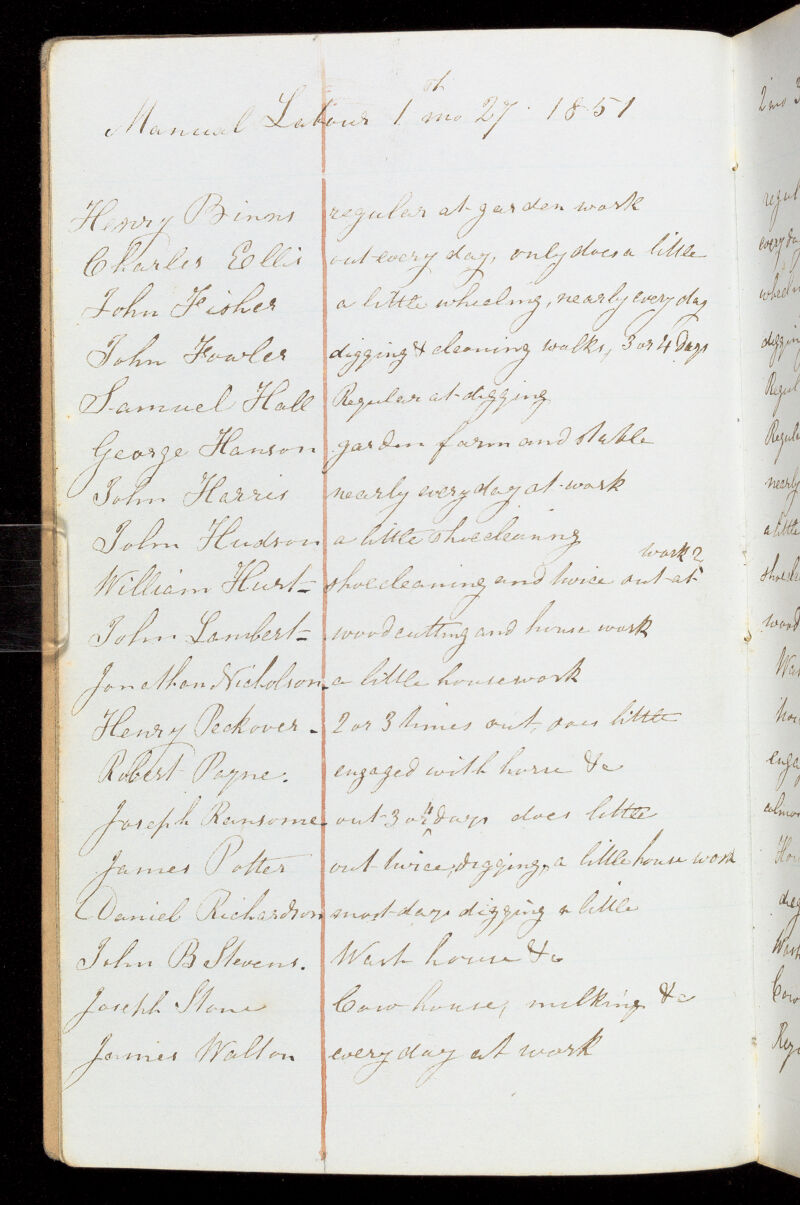 Manual Labour 1st mo 27 1851
Henry Binns regular at garden work
Charles Ellis out every day, only does a little
John Fisher a little wheeling, nearly every day
John Fowler digging & cleaning walks, 3 or 4 Days
Samuel Hall Regular at digging
George Hanson garden farm and stable
John Harris nearly every day at work
John Hudson a little shoecleaning
William Hurt shoecleaning and twice out at work
John Lambert woodcutting and house work
Jonathan Nicholson a little housework
Henry Peckover 2 or 3 times out, does little
Robert Payne. engaged with horse &c
Joseph Ransome out 3 or 4 days does little
James Potter out twice, digging, a little house work
Daniel Richardson most days digging a little
John B Stevens. Wash house &c
Joseph Stone Cow house, milking &c
James Walton every day at work
2 mo